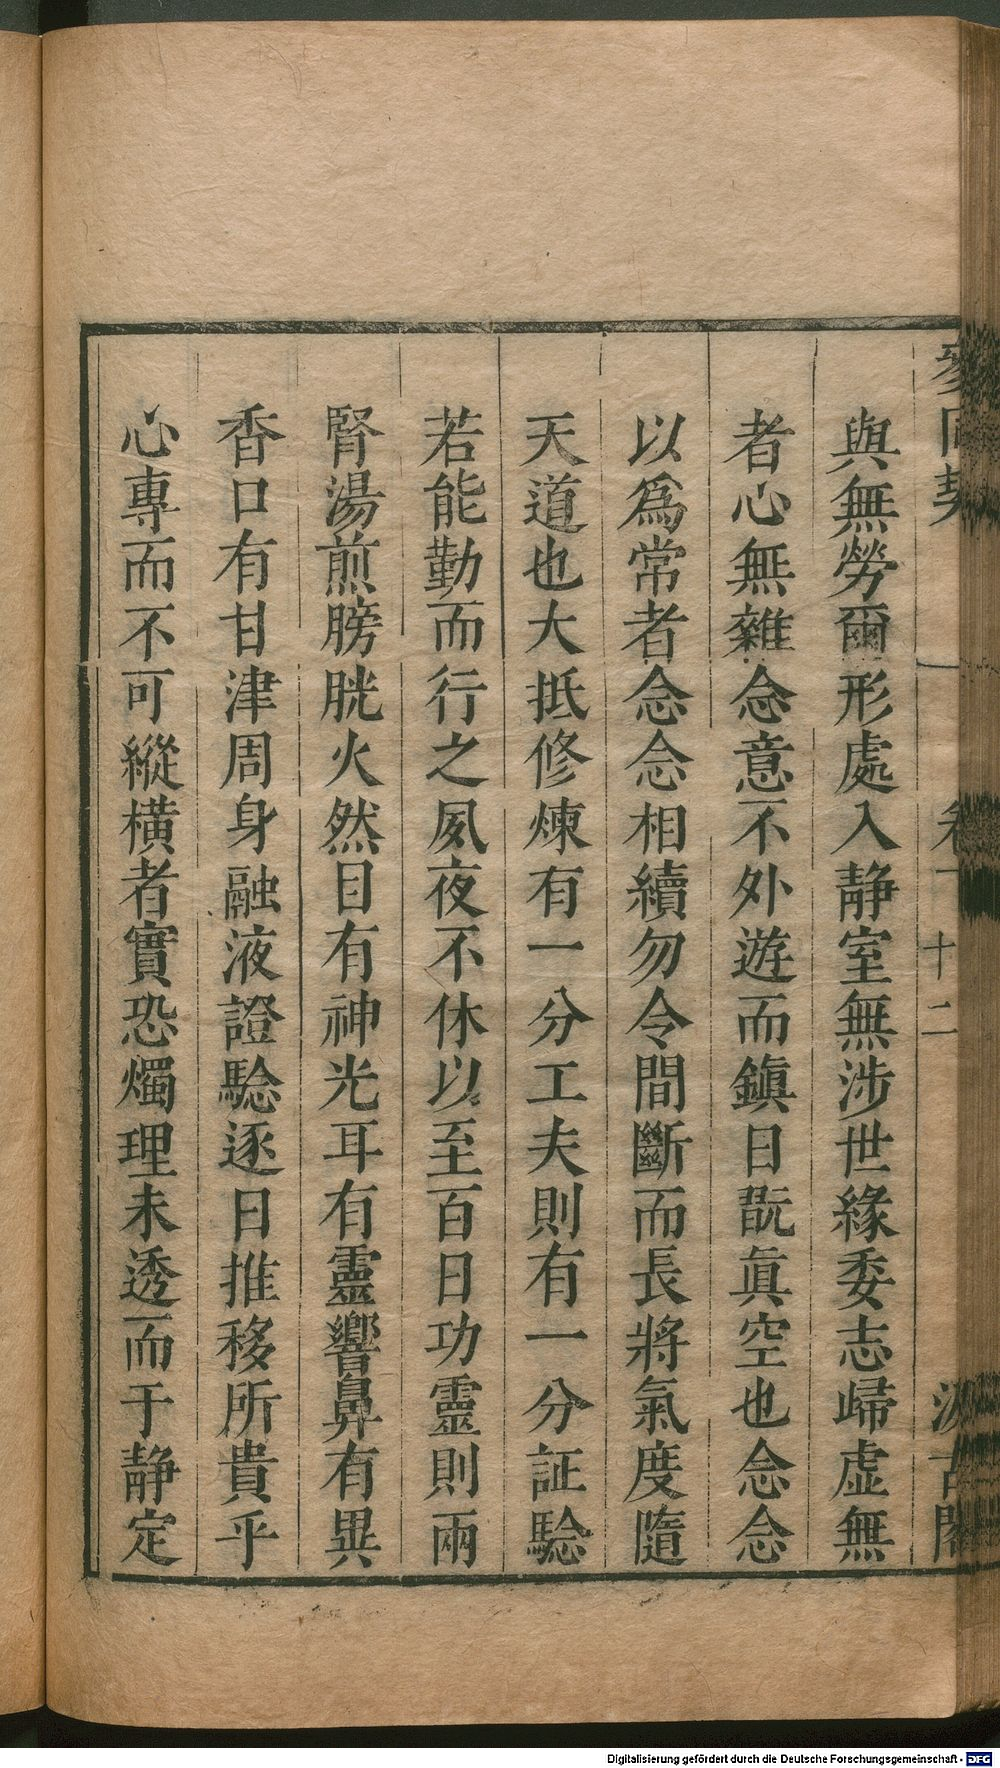 參同契 卷一 十二 汲古閣
與無勞爾形處入静室無涉世緣委志歸虛無
者心無雜念意不外遊而鎮日旣眞空也念念
以爲常者念念相續勿令間斷而長將氣度隨
天道也大抵修煉有一分工夫則有一分証騐
若能勤而行之夙夜不休以至百日功靈則兩
腎湯煎膀胱火然目有神光耳有靈響鼻有異
香口有甘津周身融液證騐逐日推移所貴乎
心專而不可縱橫者實恐燭理未透而于静定
Digitalisierung gefördert durch die Deutsche Forschungsgemeinschaft - DFG